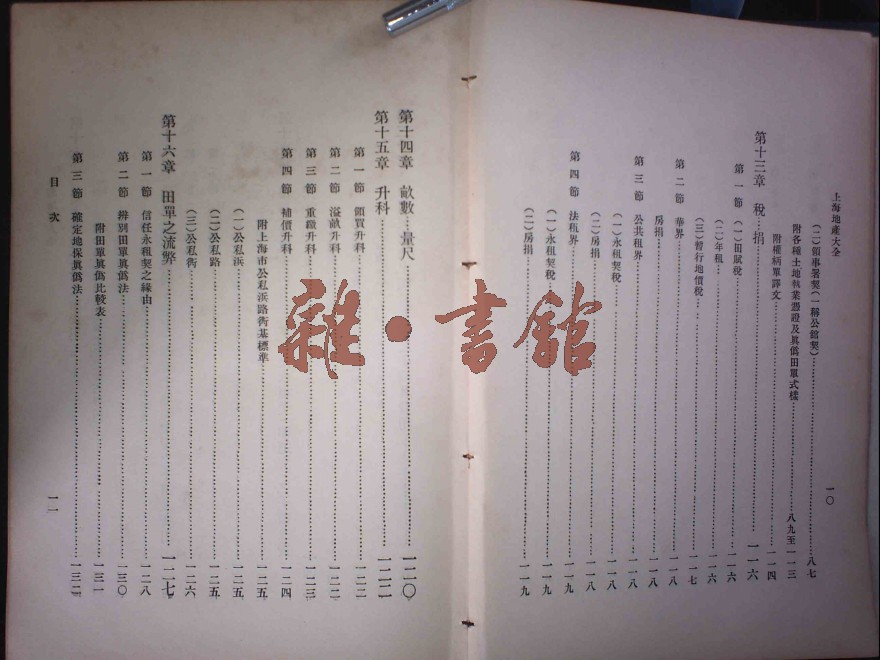 上海地產大全
(二)領事署契(一稱公館契)……八七
附各種土地執業憑證及眞僞田單式樣……八九至一一三
附權柄單譯文……一一四
第十三章 稅捐……一一六
第一節 (一)田賦稅……一一六
(二)年租……一一六
(三)暫行地價稅……一一七
第二節 華界……一一八
房捐……一一八
第三節 公共租界……一一八
(一)永租契稅……一一八
(二)房捐……一一八
第四節 法租界……一一九
(一)永租契稅……一一九
(二)房捐……一一九
一〇
第十四章 畝數 量尺……一二〇
第十五章 升科……一二二
第一節 領買升科……一二二
第二節 溢畝升科……一二二
第三節 重繳升科……一二三
第四節 補償升科……一二四
附上海市公私浜路衖基標準……一二五
(一)公私浜……一二五
(二)公私路……一二五
(三)公私衖……一二六
第十六章 田單之流弊……一二七
第一節 信任永租契之緣由……一二八
第二節 辨別田單眞僞法……一三〇
附田單眞僞比較表……一三一
第三節 確定地保眞僞法……一三二
目次
一一
雜·書館